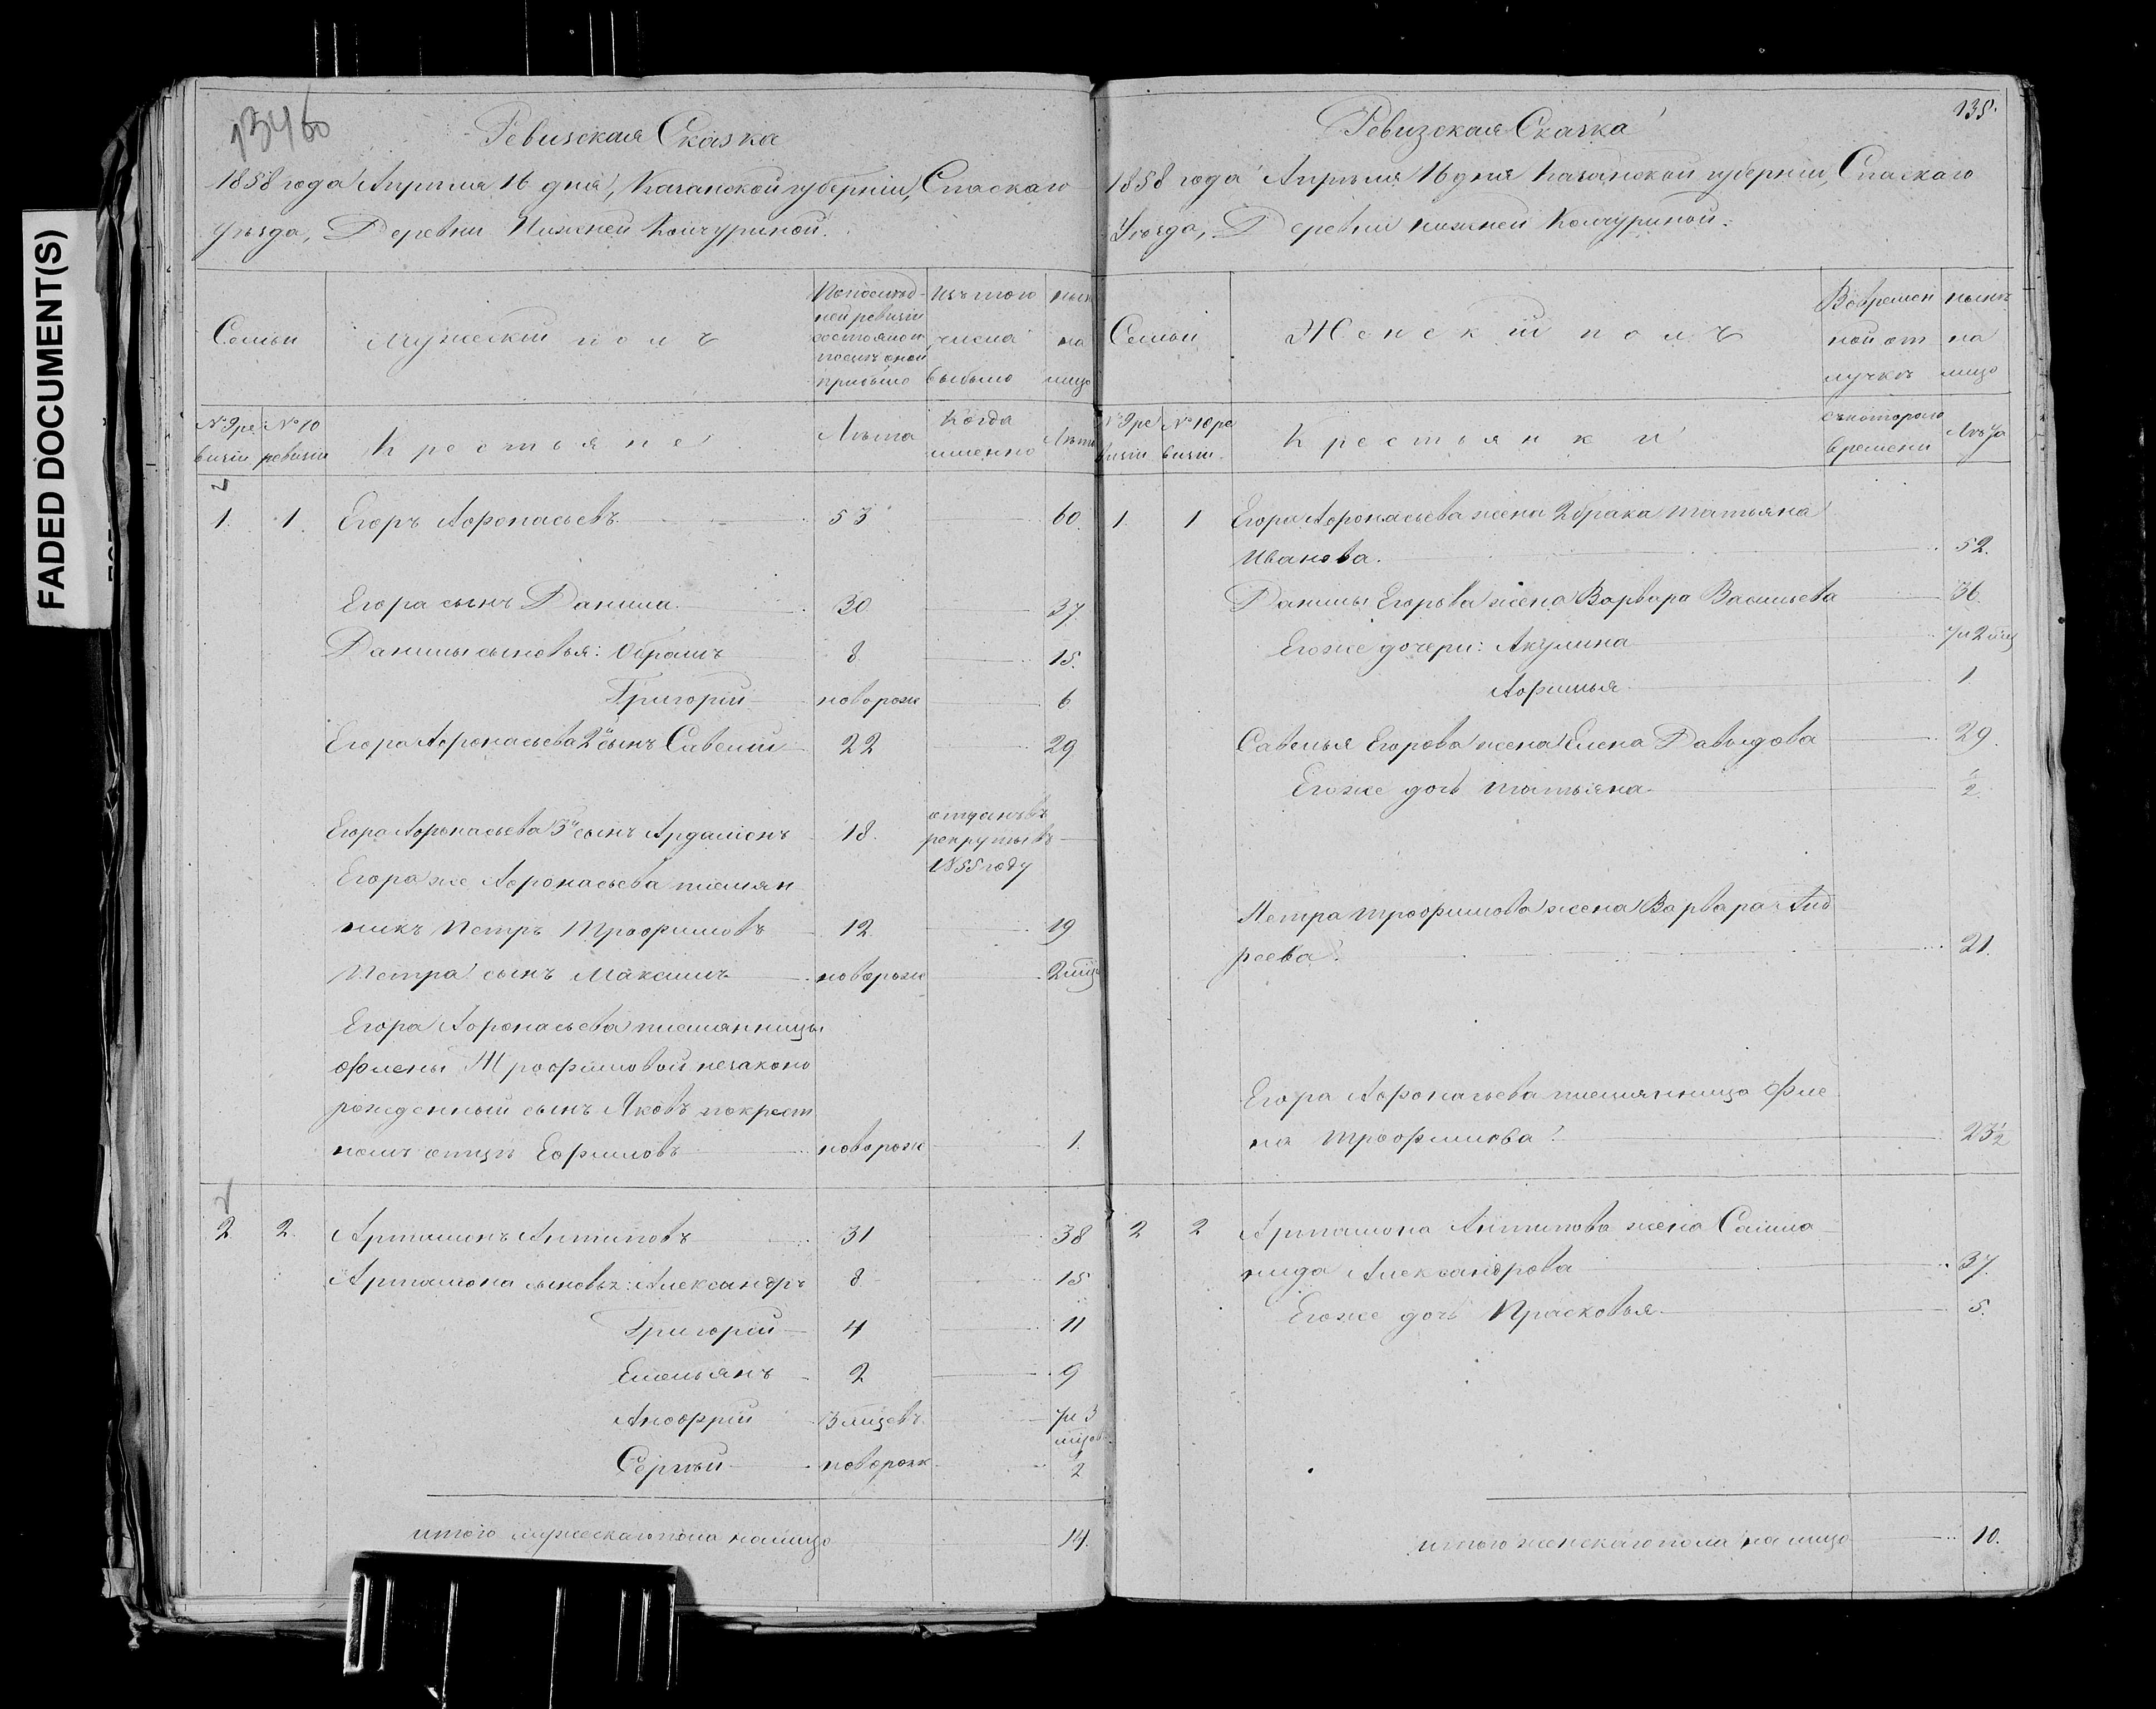 FADED DOCUMENT(S)
134об
Ревизская Сказка
1858 года Апреля 16 дня, Казанской губернии, Спаскаго
уезда, Деревни Нижней Кончуриной.
Семьи
мужеский полъ
По послед-
ней ревизіи
состояло и
после оной
прибыло
Изъ того
числа
выбыло
ныне
на
лицо
№ 9 ре
визіи
№ 10
ревизіи
Крестьяне
Лета
Когда
именно
Лета
1. 1. Егоръ Афонасьевъ 53 60.
Егора сынъ Данила 30 37
Данилы сыновья: Обрамъ 8 15.
Григорій новорож 6
Егора Афонасьева 2й сынъ Савелій 22 29
Егора Афонасьева 3й сынъ Ардаліонъ 18. отданъ въ
рекруты въ
1855 году
Егора же Афонасьева племян
никъ Петръ Трофимовъ 12. 19
Петра сынъ Максимъ новорож 2 мца
Егора Афонасьева племянницы
Ѳиены Трофимовой незаконо
рожденный сынъ Яковъ по крест
номъ отце Ефимовъ новорож 1.
2 2. Артамонъ Антиповъ 31 38
Артамона сыновья: Александръ 8 15
Григорій 4 11
Емельянъ 2 9
Анофрій 3 мцевъ 7 и 3
мцов
Сергей новорож 2
итого мужескаго пола налицо 14.
135.
Ревизская Сказка
1858 года Апреля 16 дня Казанской губерніи, Спаскаго
Уезда, Деревни нижней Кончуриной.
Семьи
Женскій полъ
Во времен
ной от
лучке
ныне
на
лицо
№ 9 ре
визіи
№ 10 ре
визіи.
Крестьянки
съ котораго
времени
Лета
1. 1 Егора Афонасьева жена 2 брака Татьяна
Иванова. 52.
Данилы Егорова жена Варвара Васильева 36.
Его же дочери: Акулина 7 и 2 мц
Афимья 1
Савелья Егорова жена Елена Давыдова 29.
Его же дочь Татьяна 1/2.
Петра Трофимова жена Варвара Анд
реева. 21.
Егора Афонасьева племянница Фие
на Трофимова 23 1/2
2 2 Артамона Антипова жена Сало­ма
нида Александрова 37.
Его же дочь Прасковья 5.
итого женскаго пола на лицо 10.